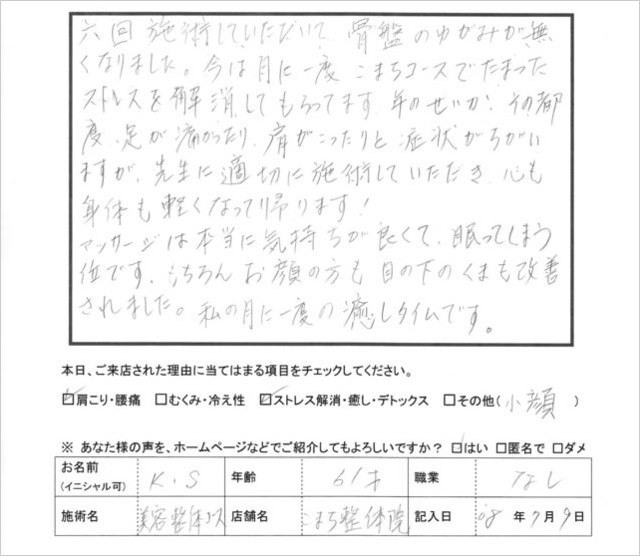 六回施術していただいて、骨盤のゆがみが無
くなりました。今は月に一度こまちコースでたまった
ストレスを解消してもらってます。年のせいか、その都
度、足が痛かったり、肩がこったりと症状がちがい
ますが、先生に適切に施術していただき、心も
身体も軽くなって帰ります!
マッサージは本当に気持ちが良くて、眠ってしまう
位です。もちろんお顔の方も目の下のくまも改善
されました。私の月に一度の癒しタイムです。
本日、ご来店された理由に当てはまる項目をチェックしてください。
☑肩こり・腰痛 □むくみ・冷え性 ☑ストレス解消・癒し・デトックス □その他(小顔)
※ あなた様の声を、ホームページなどでご紹介してもよろしいですか? ☑はい □匿名で □ダメ
お名前(イニシャル可) K.S 年齢 61才 職業 なし
施術名 美容整体コース 店舗名 こまち整体院 記入日 '08年7月9日